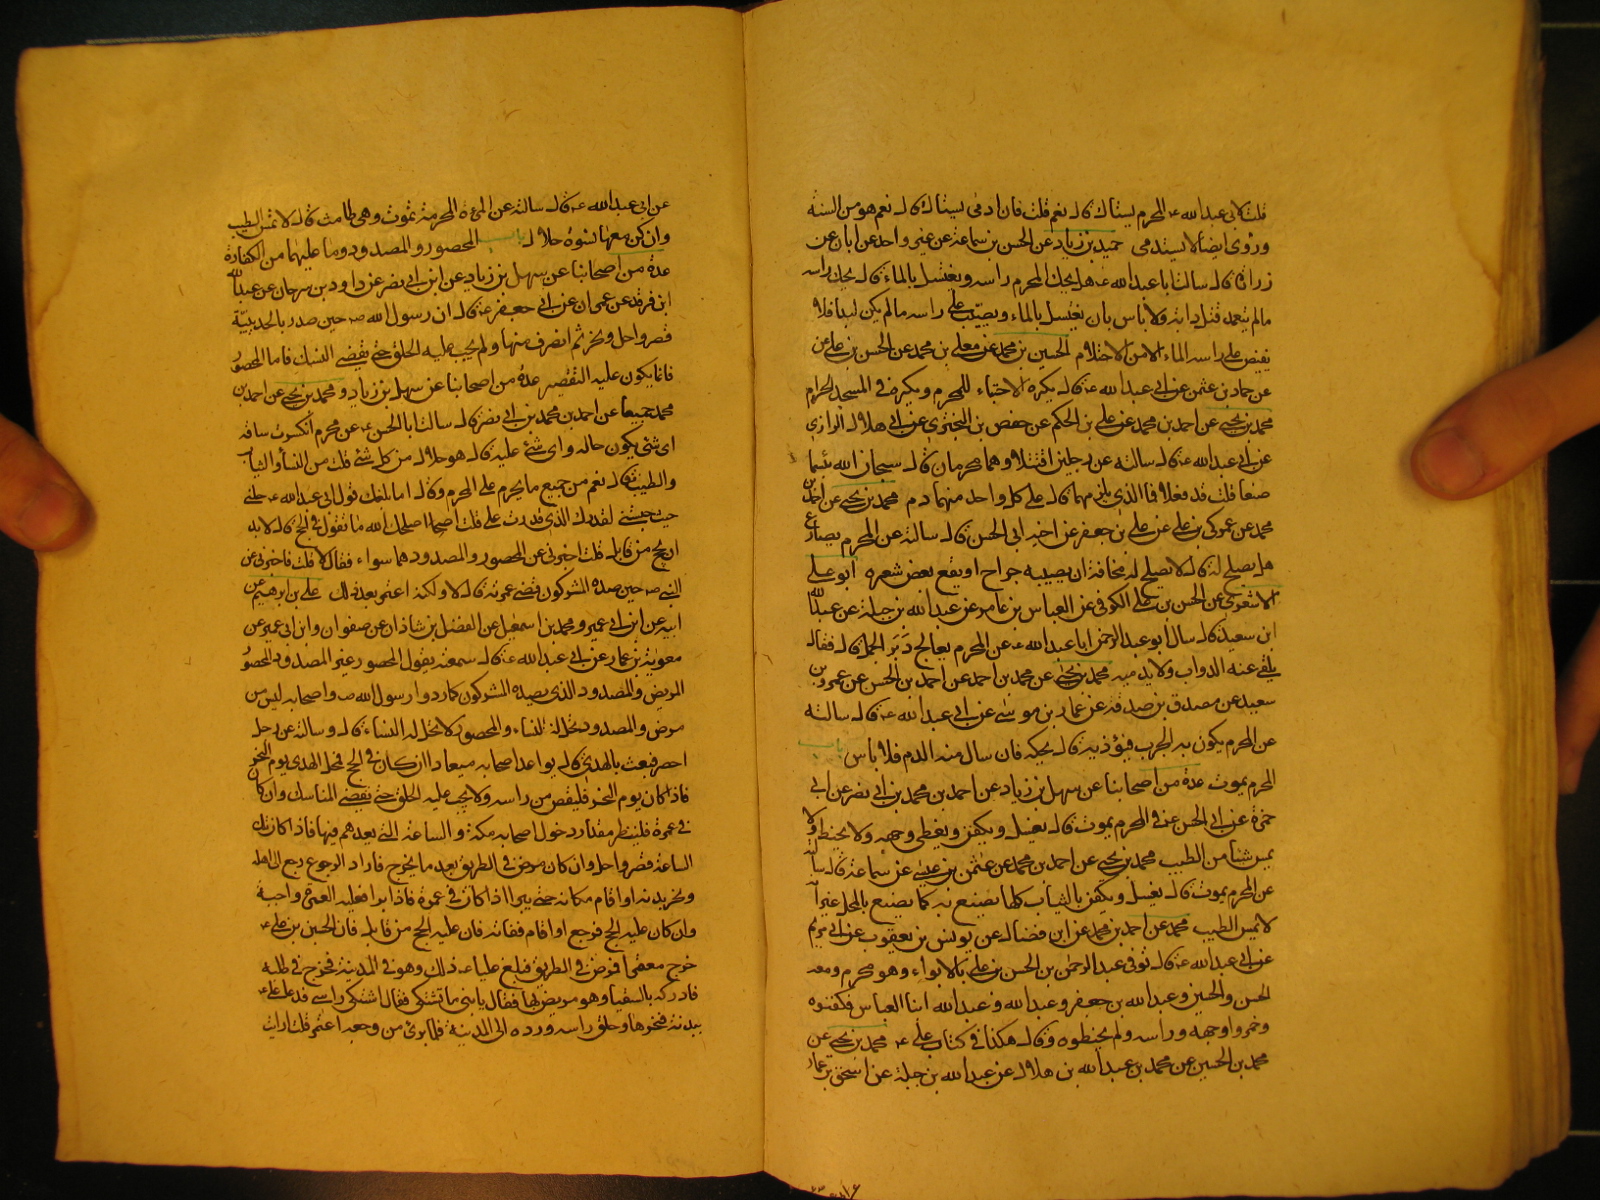 قلت لابي عبدالله ع المحرم يستاك قال نعم قلت فان ادمى يستاك قال نعم هو من السنة
وروى ايضا لا يستدمى حميد بن زياد عن الحسن بن سماعة عن غير واحد عن ابان عن
زرارة قال سالت ابا عبدالله ع هل يحك المحرم راسه ويغتسل بالماء قال يحك راسه
مالم يتعمد قتل دابة ولا باس بان يغتسل بالماء ويصب على راسه مالم يكن ملبدا فلا
يفيض على راسه الماء الا من الاحتلام الحسين بن محمد عن معلى بن محمد عن الحسن بن علي عن
عن حماد بن عثمن عن ابي عبدالله ع قال يكره الاحتباء للمحرم ويكره في المسجد الحرام
محمد بن يحيى عن احمد بن محمد عن علي بن الحكم عن حفص بن البختري عن ابي هلال الرازي
عن ابي عبدالله ع قال سالته عن رجلين اقتتلا وهما محرمان قال سبحان الله بئسما
صنعا قلت قد فعلا فما الذي يلزمهما قال على كل واحد منهما دم محمد بن يحيى عن احمد بن
محمد عن عمركي بن علي عن علي بن جعفر عن اخيه ابي الحسن قال سالته عن المحرم يصارع
هل يصلح له قال لا يصلح له مخافة ان يصيبه جراح او يقع بعض شعره ابو علي
الاشعري عن الحسن بن علي الكوفي عن العباس بن عامر عن عبدالله بن جبلة عن عبدالله
ابن سعيد قال سال ابو عبدالرحمن ابا عبدالله ع عن المحرم يعالج دبر الجمل قال فقال
يلقي عنه الدواب ولا يدميه محمد بن يحيى عن محمد بن احمد عن احمد بن الحسن عن عمرو بن
سعيد عن مصدق بن صدقة عن عمار بن موسى عن ابي عبدالله ع قال سالته
عن المحرم يكون به الجرب فيؤذيه قال يحكه فان سال منه الدم فلا باس باب
المحرم يموت عدة من اصحابنا عن سهل بن زياد عن احمد بن محمد بن ابي نصر عن ابي
حمزة عن ابي الحسن ع في المحرم يموت قال يغسل ويكفن ويغطى وجهه ولا يحنط ولا
يمس شيئا من الطيب محمد بن يحيى عن احمد بن محمد عن عثمن بن عيسى عن سماعة قال سالته
عن المحرم يموت قال يغسل ويكفن بالثياب كلها يصنع به كما يصنع بالمحل غير انه
لا يمس الطيب محمد عن احمد بن محمد عن ابن فضال عن يونس بن يعقوب عن ابي مريم
عن ابي عبدالله ع قال توفى عبد الرحمن بن الحسن بن علي بالابواء وهو محرم ومعه
الحسن والحسين وعبدالله بن جعفر وعبدالله وعبيدالله ابنا العباس فكفنوه
وخمروا وجهه وراسه ولم يحنطوه وقال هكذا في كتاب علي ع محمد بن يحيى عن
محمد بن الحسين عن محمد بن عبدالله بن هلال عن عبدالله بن جبلة عن اسحق بن عمار
عن ابي عبدالله ع قال سالته عن المرءة المحرمة تموت وهي طامث قال لا تمس الطيب
وان كن معها نسوة حلال باب المحصور والمصدود وما عليهما من الكفارة
عدة من اصحابنا عن سهل بن زياد عن ابن ابي نصر عن داود بن سرحان عن عبدالله
ابن فرقد عن حمران عن ابي جعفر ع قال ان رسول الله ص حين صدر بالحديبية
قصر واحل ونحر ثم انصرف منها ولم يجب عليه الحلق حتى يقضي النسك فاما المحصور
فانما يكون عليه التقصير عدة من اصحابنا عن سهل بن زياد ومحمد بن يحيى عن احمد بن
محمد جميعا عن احمد بن محمد بن ابي نصر قال سالت ابا الحسن ع عن محرم انكسرت ساقه
اي شئ يكون حاله واي شئ عليه قال هو حلال من كل شئ قلت من النساء والثياب
والطيب قال نعم من جميع ما يحرم على المحرم وقال اما بلغك قول ابي عبدالله ع حلني
حيث حبستني لقدرك الذي قدرت علي قلت اصلحك الله ما تقول في الحج قال لا بد
ان يحج من قابل قلت اخبرني عن المحصور والمصدود هما سواء فقال لا قلت فاخبرني عن
النبي ص حين صده المشركون قضى عمرته قال لا ولكنه اعتمر بعد ذلك علي بن ابرهيم عن
ابيه عن ابن ابي عمير ومحمد بن اسمعيل عن الفضل بن شاذان عن صفوان وابن ابي عمير عن
معوية بن عمار عن ابي عبدالله ع قال سمعته يقول المحصور غير المصدود المحصور
المريض والمصدود الذي يصده المشركون كما ردوا رسول الله ص واصحابه ليس من
مرض والمصدود تحل له النساء والمحصور لا تحل له النساء قال وسالته عن رجل
احصر فبعث بالهدي قال يواعد اصحابه ميعادا ان كان في الحج فمحل الهدي يوم النحر
فاذا كان يوم النحر فليقص من راسه ولا يجب عليه الحلق حتى يقضي المناسك وان كان
في عمرة فلينظر مقدار دخول اصحابه مكة والساعة التي يعدهم فيها فاذا كان تلك
الساعة قصر واحل وان كان مرض في الطريق بعد ما يخرج فاراد الرجوع رجع الى اهله
ونحر بدنة او اقام مكانه حتى يبرا اذا كان في عمرة فاذا برا فعليه العمرة واجبة
وان كان عليه الحج فرجع او اقام ففاته فان عليه الحج من قابل فان الحسين بن علي ع
خرج معتمرا فمرض في الطريق فبلغ عليا ع ذلك وهو في المدينة فخرج في طلبه
فادركه بالسقيا وهو مريض بها فقال يا بني ما تشتكي فقال اشتكي راسي فدعا علي ع
ببدنة فنحرها وحلق راسه ورده الى المدينة فلما برئ من وجعه اعتمر قلت ارايت